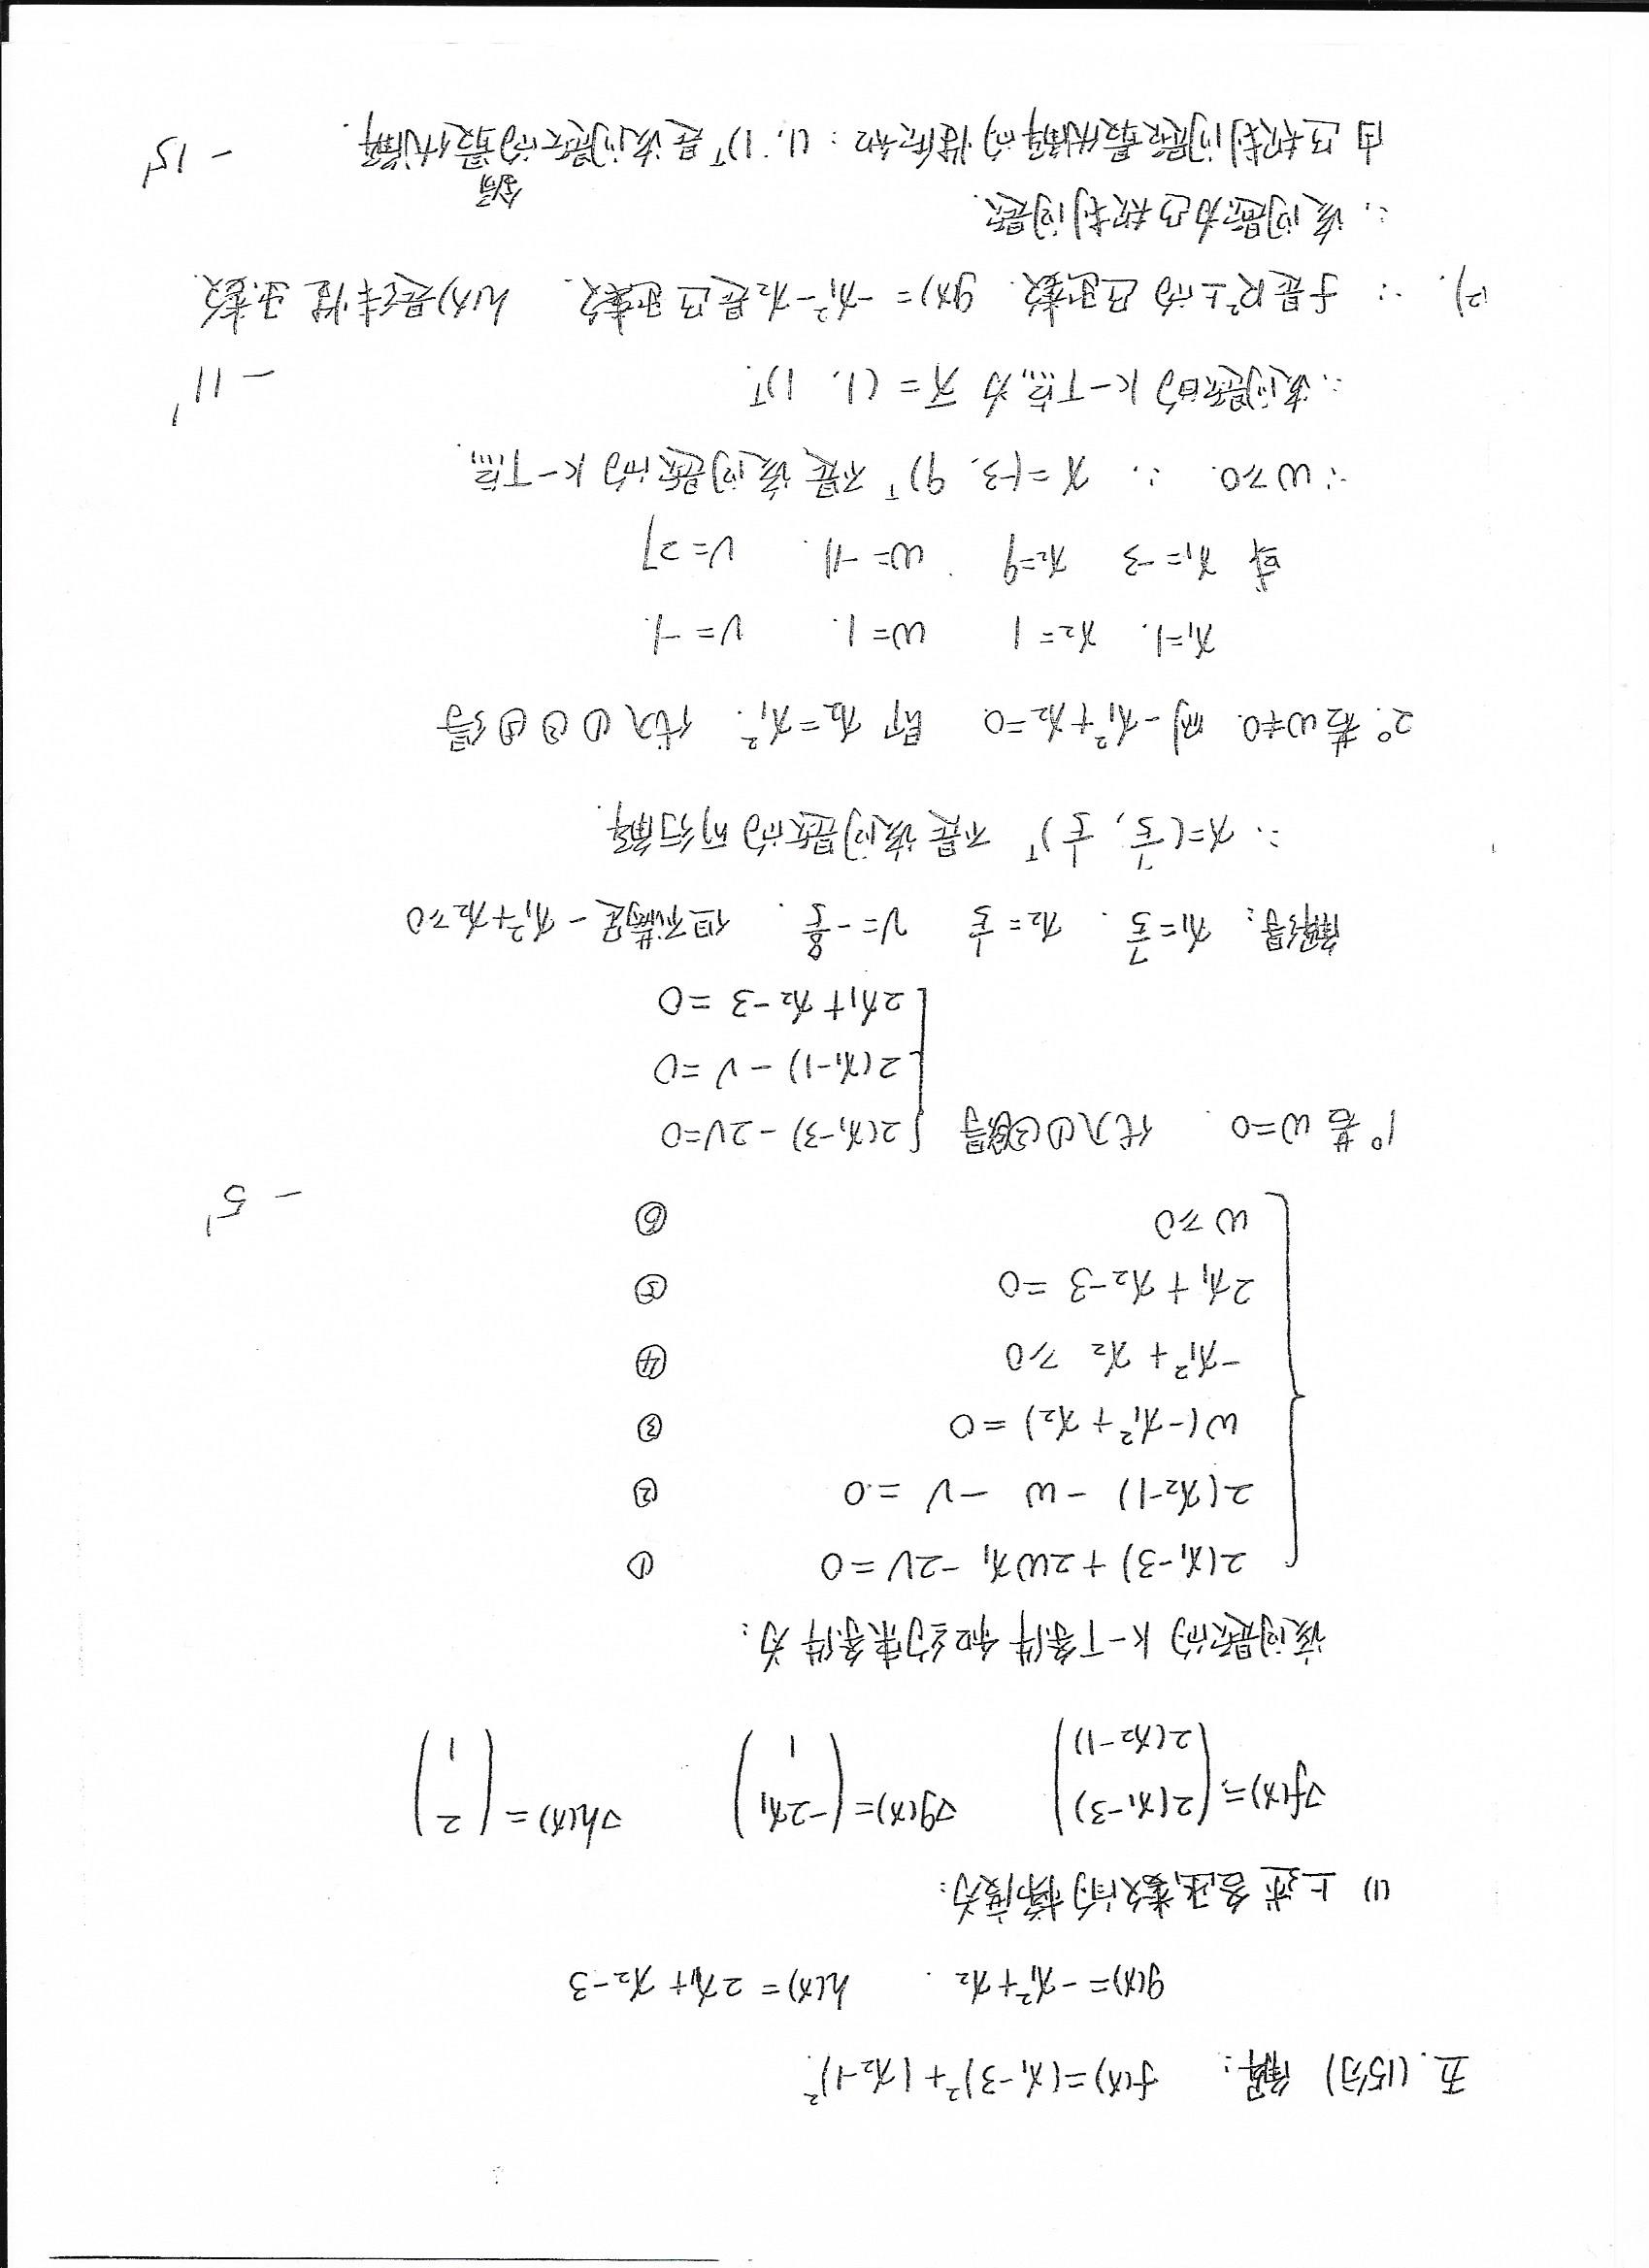 五.(15分) 解: f(x)=(x₁-3)²+(x₂-1)²
g(x)=-x₁²+x₂. h(x)=2x₁+x₂-3
(1) 上述各函数的梯度为:
∇f(x)=(2(x₁-3) 2(x₂-1)) ∇g(x)=(-2x₁ 1) ∇h(x)=(2 1)
该问题的K-T条件和约束条件为:
2(x₁-3)+2wx₁-2v=0 ①
2(x₂-1)-w-v=0 ②
w(-x₁²+x₂)=0 ③
-x₁²+x₂≥0 ④
2x₁+x₂-3=0 ⑤
w≥0 ⑥ -5'
1° 若w=0. 代入①②⑤得 2(x₁-3)-2v=0
2(x₁-1)-v=0
2x₁+x₂-3=0
解得: x₁=7/5. x₂=1/5 v=-8/5. 但不满足-x₁²+x₂≥0
∴ x=(7/5, 1/5)ᵀ 不是该问题的可行解.
2° 若w≠0. 则-x₁²+x₂=0 即x₂=x₁². 代入①②⑤得
x₁=1. x₂=1 w=1. v=-1.
或 x₁=-3 x₂=9. w=-11. v=27
∵w≥0. ∴ x=(-3, 9)ᵀ 不是该问题的K-T点.
∴该问题的K-T点为 x̄=(1, 1)ᵀ. -11'
(2). ∵ f是R²上的凸函数. g(x)=-x₁²-x₂是凹函数. h(x)是线性函数.
∴ 该问题为凸规划问题.
由凸规划问题最优解的性质知: (1, 1)ᵀ是该问题的全局最优解. -15'